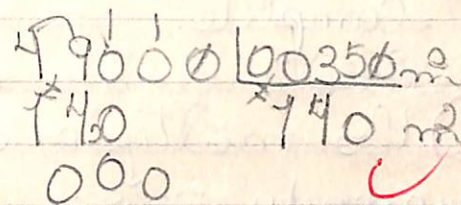 49000 00350 m²
140 140 m²
000